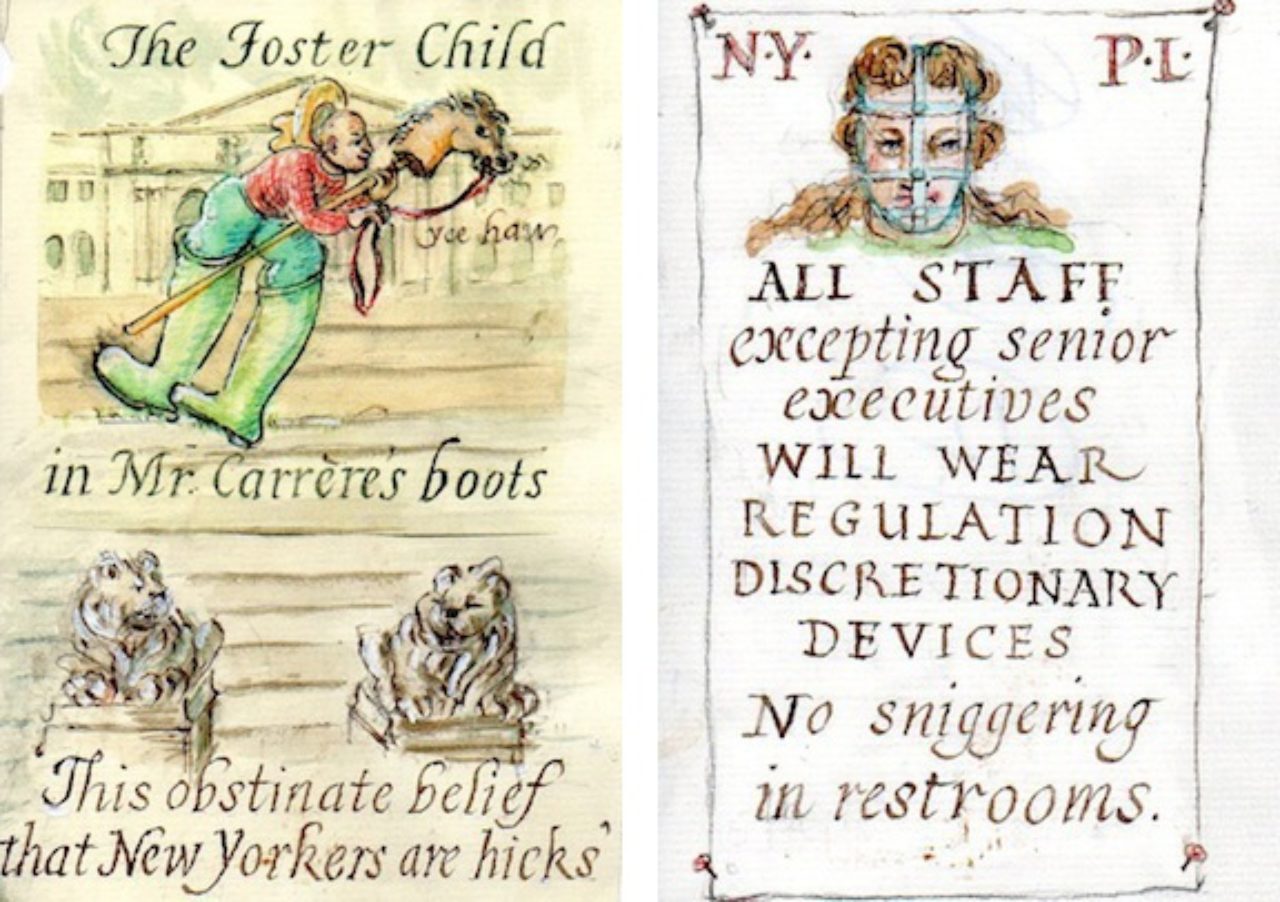 The Foster Child
yee haw,
in Mr. Carrère's boots
This obstinate belief
that New Yorkers are hicks'
N.Y. P.L.
ALL STAFF
excepting senior
executives
WILL WEAR
REGULATION
DISCRETIONARY
DEVICES
No sniggering
in restrooms.